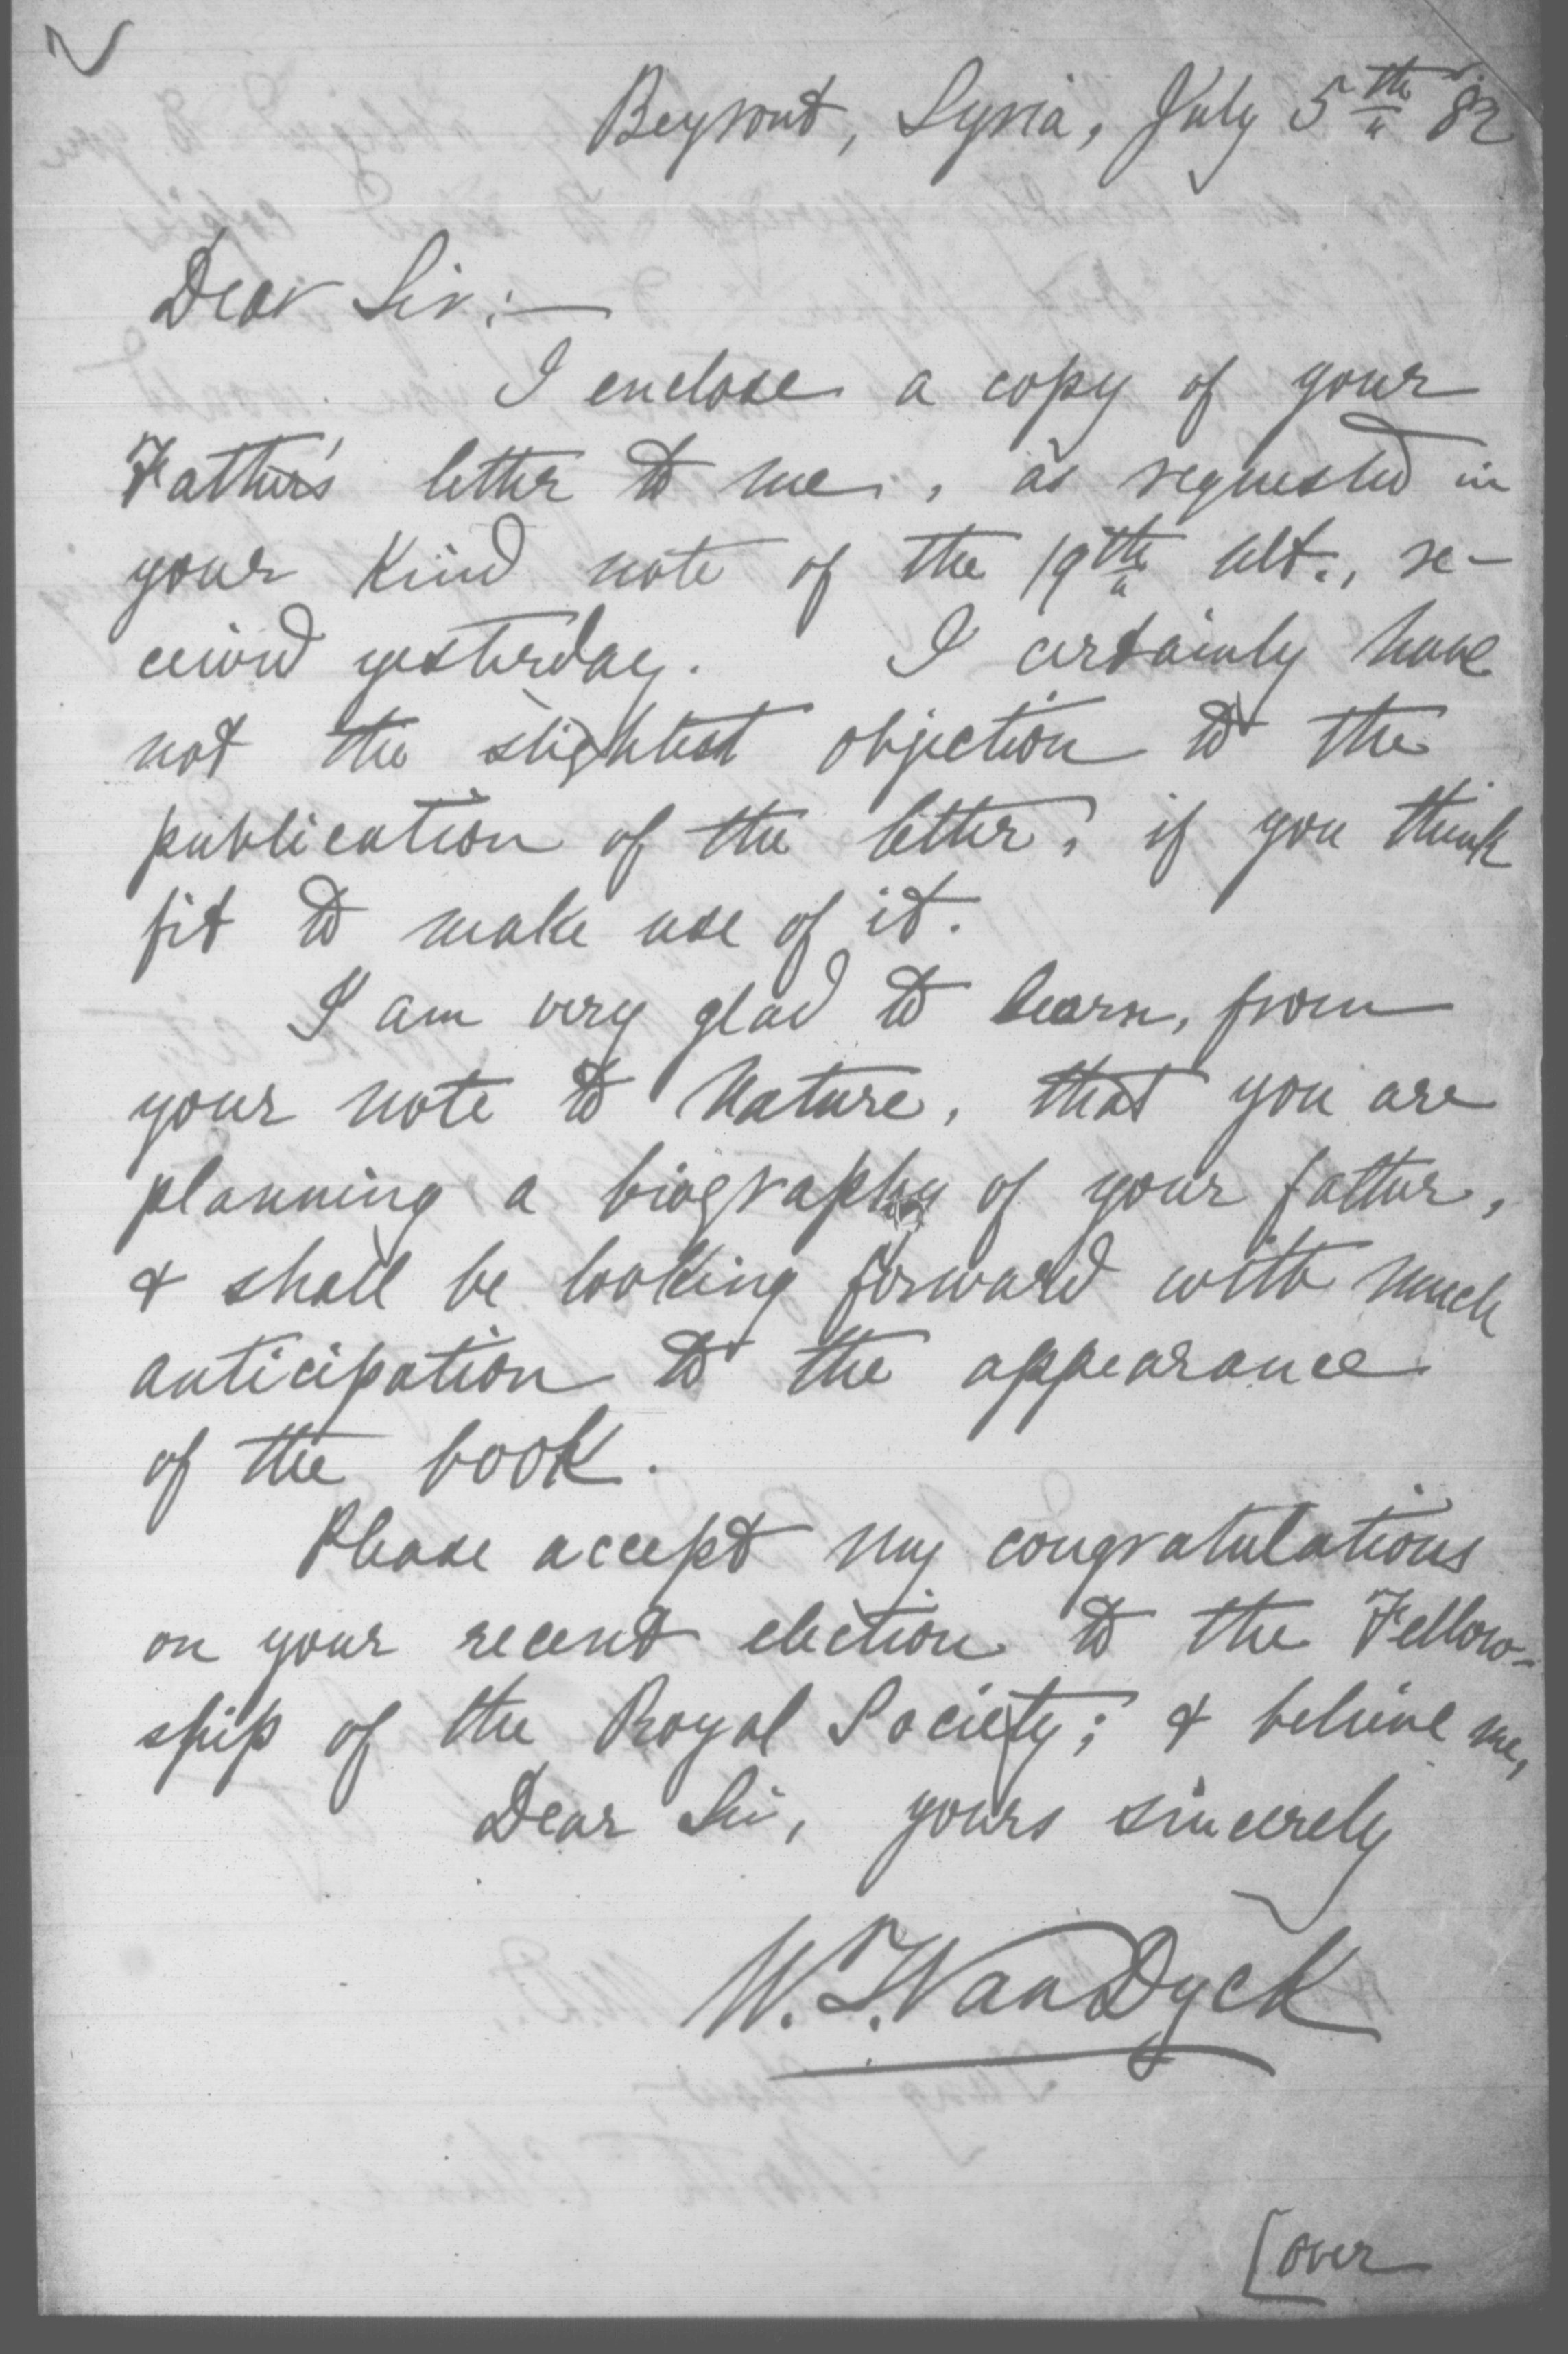 Beyrout, Syria, July 5th 82
Dear Sir:—
I enclose a copy of your
Father's letter to me, as requested in
your kind note of the 19th ult., re-
ceived yesterday. I certainly have
not the slightest objection to the
publication of the letter, if you think
fit to make use of it.
I am very glad to learn, from
your note to Nature, that you are
planning a biography of your father,
& shall be looking forward with much
anticipation to the appearance
of the book.
Please accept my congratulations
on your recent election to the Fellow-
ship of the Royal Society; & believe me,
Dear Sir, yours sincerely
W. T. Van Dyck
[over